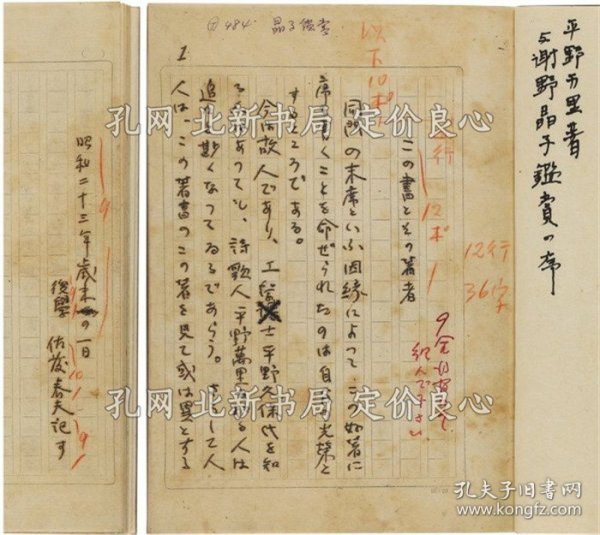 平野万里著
与謝野晶子鑑賞の序
484
晶子鑑賞
以下10ポ
12行
36字
12ポ
この書とその著者
同門の末席といふ因縁によつてこの好著に
序を書くことを命ぜられたのは自分の光栄と
するところである。
今は故人であり、工学士平野久保氏を知
る人はあつても、詩歌人平野萬里を知る人は
追々尠くなつてゐるであらう。さうして人
人は、この著書のこの署を見て或は異とする
1
昭和二十三年歳末の一日
後学 佐藤春夫記す
孔网 北新书局 定价良心
孔网 北新书局 定价良心
孔夫子旧书网
www.kongfz.com